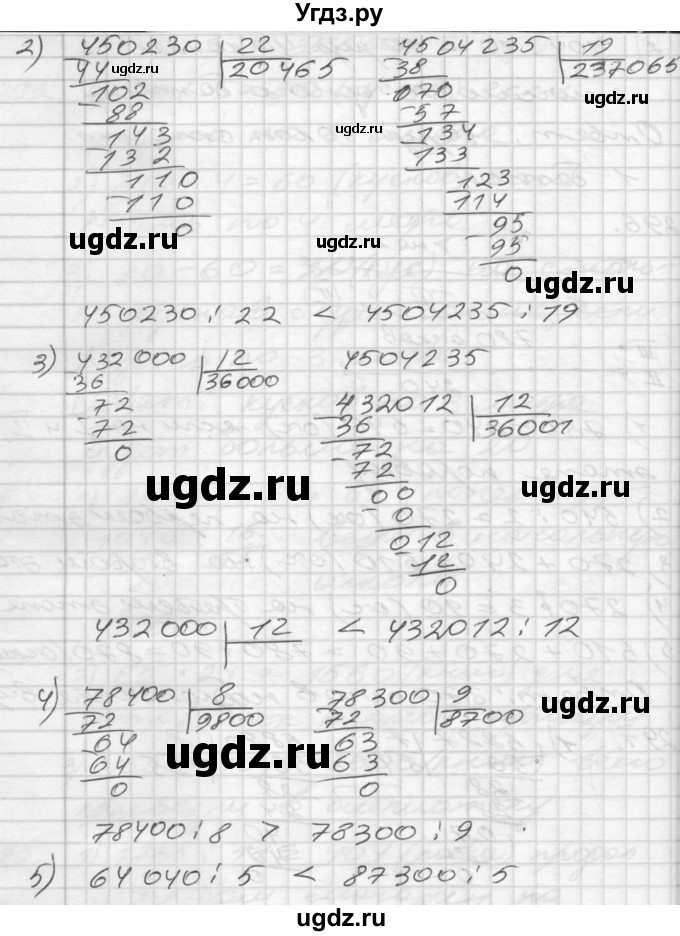 Угдз.ру
2) 450230 | 22
44 20465
102
88
143
132
110
110
0
4504235 | 19
38 237065
070
57
134
133
123
114
95
95
0
450230 : 22 < 4504235 : 19
3) 432000 | 12
36 36000
72
72
0
4504235
432012 | 12
36 36001
72
72
00
0
012
12
0
432000 | 12 < 432012 : 12
4) 78400 | 8
72 9800
64
64
0
78300 | 9
72 8700
63
63
0
78400 : 8 > 78300 : 9
5) 64040 : 5 < 87300 : 5
ugdz.ru
ugdz.ru
ugdz.ru
ugdz.ru
ugdz.ru
ugdz.ru
ugdz.ru
ugdz.ru
ugdz.ru
ugdz.ru
ugdz.ru
ugdz.ru
ugdz.ru